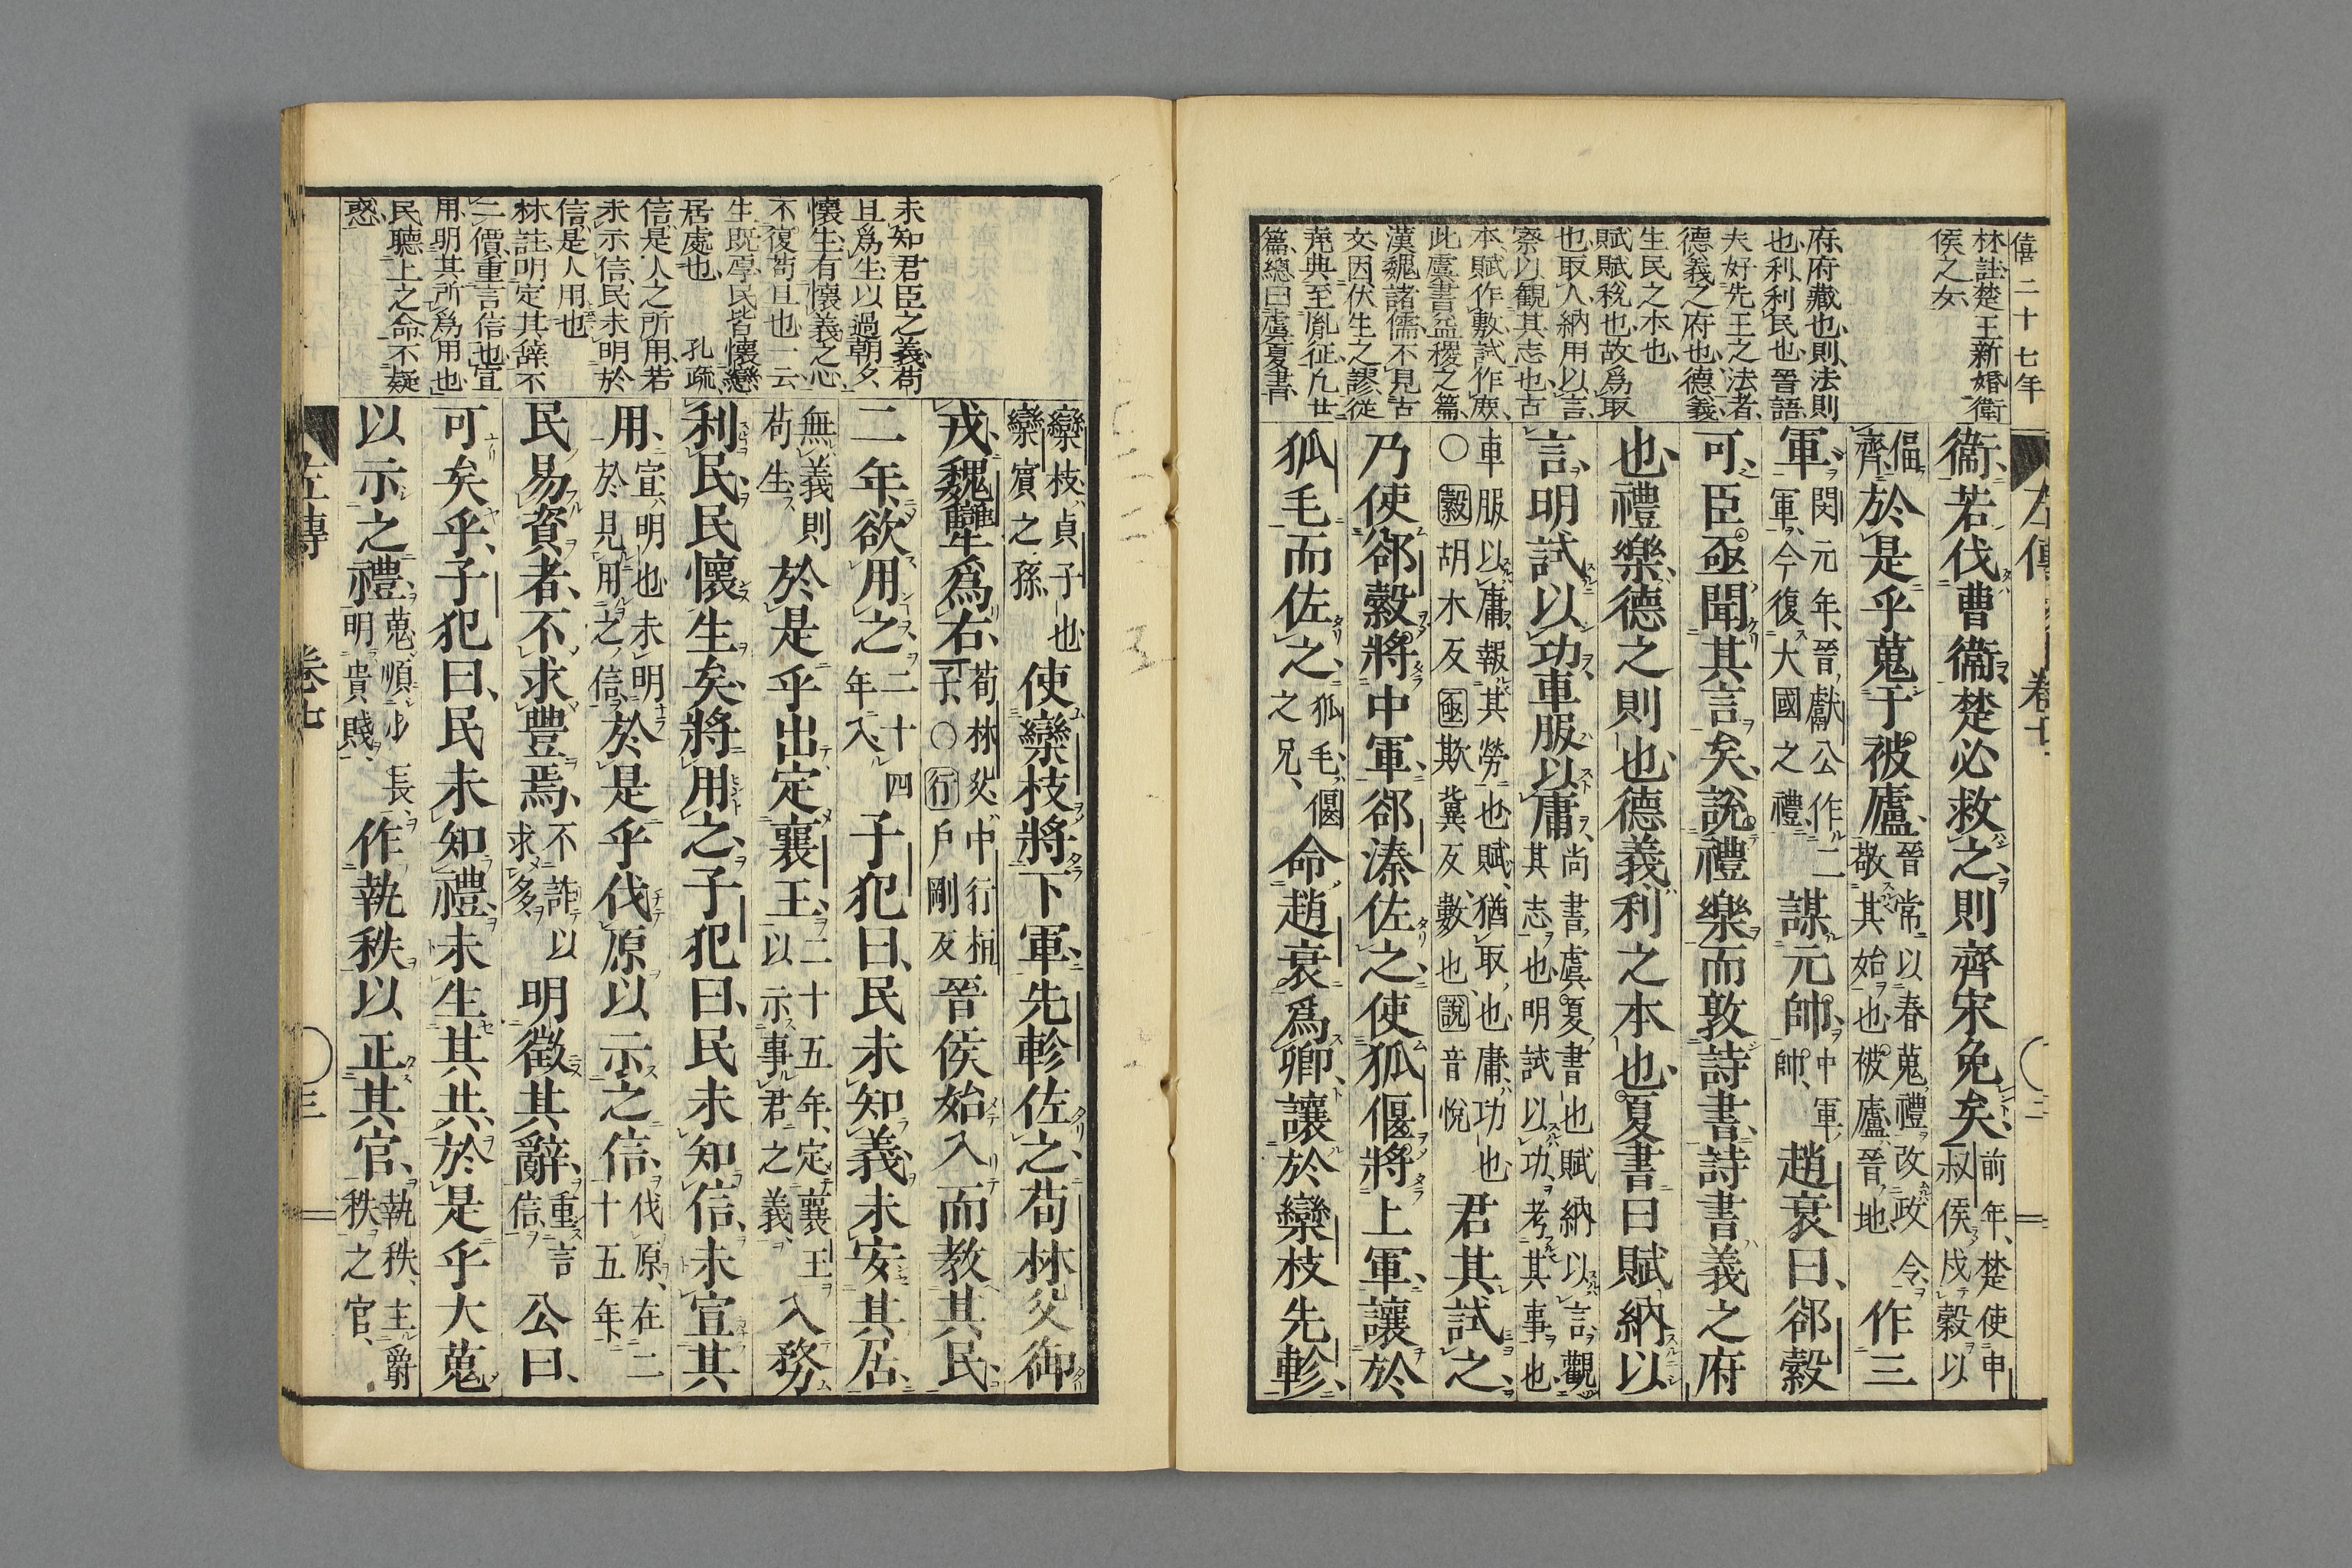 僖二十七年
左傳 卷七 二
林註楚王新婚衞
侯之女
府府藏也則法則
也利利民也晉語
夫好先王之法者
德義之府也德義
生民之本也
賦賦稅也故爲取
也取人納用以言
察以觀其志也古
本賦作敷試作庶
此虞書益稷之篇
漢魏諸儒不見古
文因伏生之謬從
堯典至胤征凢廿
篇總曰虞夏書
衞若伐曹衞楚必救之則齊宋免矣前年楚使申叔侯戍穀以
偪齊於是乎蒐于被廬晉常以春蒐禮改政令敬其始也被廬晉地作三
軍閔元年晉獻公作二軍今復大國之禮謀元帥中軍帥趙衰曰郤縠
可臣亟聞其言矣說禮樂而敦詩書詩書義之府
也禮樂德之則也德義利之本也夏書曰賦納以
言明試以功車服以庸尚書虞夏書也賦納以言觀其志也明試以功考其事也
車服以庸報其勞也賦猶取也庸功也○縠胡木反亟欺冀反數也說音悅君其試之
乃使郤縠將中軍郤溱佐之使狐偃將上軍讓於
狐毛而佐之狐毛偃之兄命趙衰爲卿讓於欒枝先軫
未知君臣之義苟
且爲生以過朝夕
懷生有懷義之心
不復苟且也一云
生既厚民皆懷戀
居處也 孔疏
信是人之所用若
未示信民未明於
信是人用也
林註明定其辭不
二價重言信也宣
用明其所爲用也
民聽上之命不疑
惑
欒枝貞子也欒賓之孫使欒枝將下軍先軫佐之荀林父御
戎魏犨爲右荀林父中行桓子○行戶剛反晉侯始入而教其民
二年欲用之二十四年入子犯曰民未知義未安其居
無義則苟生於是乎出定襄王二十五年定襄王以示事君之義入務
利民民懷生矣將用之子犯曰民未知信未宣其
用宣明也未明於見用之信於是乎伐原以示之信伐原在二十五年
民易資者不求豐焉不詐以求多明徵其辭重言信公曰
可矣乎子犯曰民未知禮未生其共於是乎大蒐
以示之禮蒐順少長明貴賤作執秩以正其官執秩主爵秩之官
左傳 卷七 三